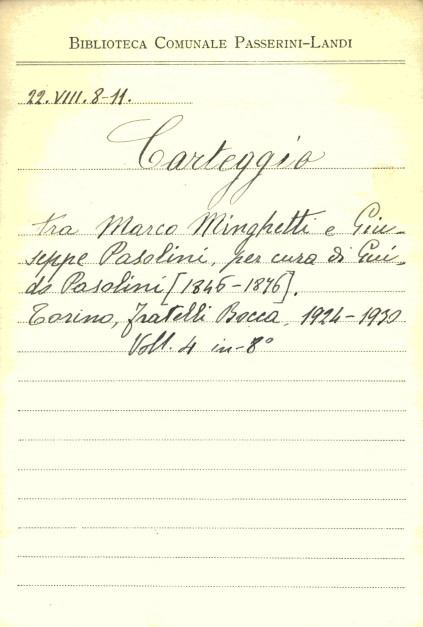 BIBLIOTECA COMUNALE PASSERINI-LANDI
22.VIII.8-11.
Carteggio
tra Marco Minghetti e Giu-
seppe Pasolini, per cura di Gui-
do Pasolini [1846-1876].
Torino, Fratelli Bocca, 1924-1930
Voll. 4 in-8°